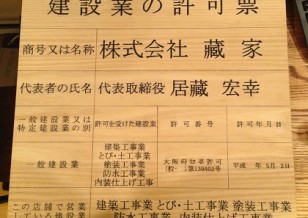 建設業の許可票
商号又は名称 株式会社 藏家
代表者の氏名 代表取締役 居藏宏幸
一般建設業又は
特定建設業の別
許可を受けた建設業 許可番号 許可年月日
一般建設業
建築工事業
とび・土工工事業
塗装工事業
防水工事業
内装仕上工事
大阪府知事許可
第139402号
平成 年 5月 2日
この店舗で営業
している建設業
建築工事業 とび・土工工事業 塗装工事業
防水工事業 内装仕上工事業